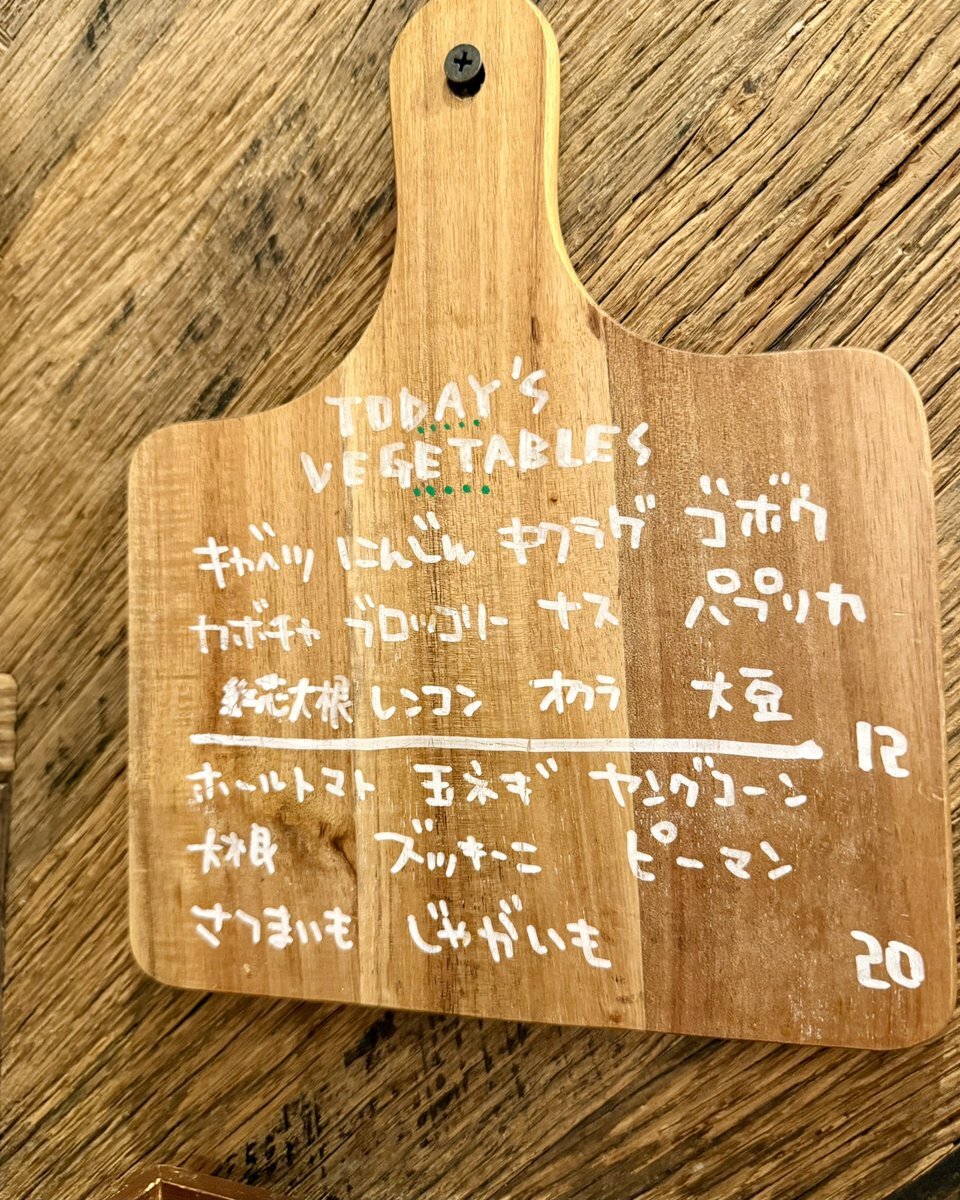 TODAY'S
VEGETABLES
キャベツ にんじん キクラゲ ゴボウ
カボチャ ブロッコリー ナス パプリカ
紅芯大根 レンコン オクラ 大豆
12
ホールトマト 玉ネギ ヤングコーン
大根 ズッキーニ ピーマン
さつまいも じゃがいも
20